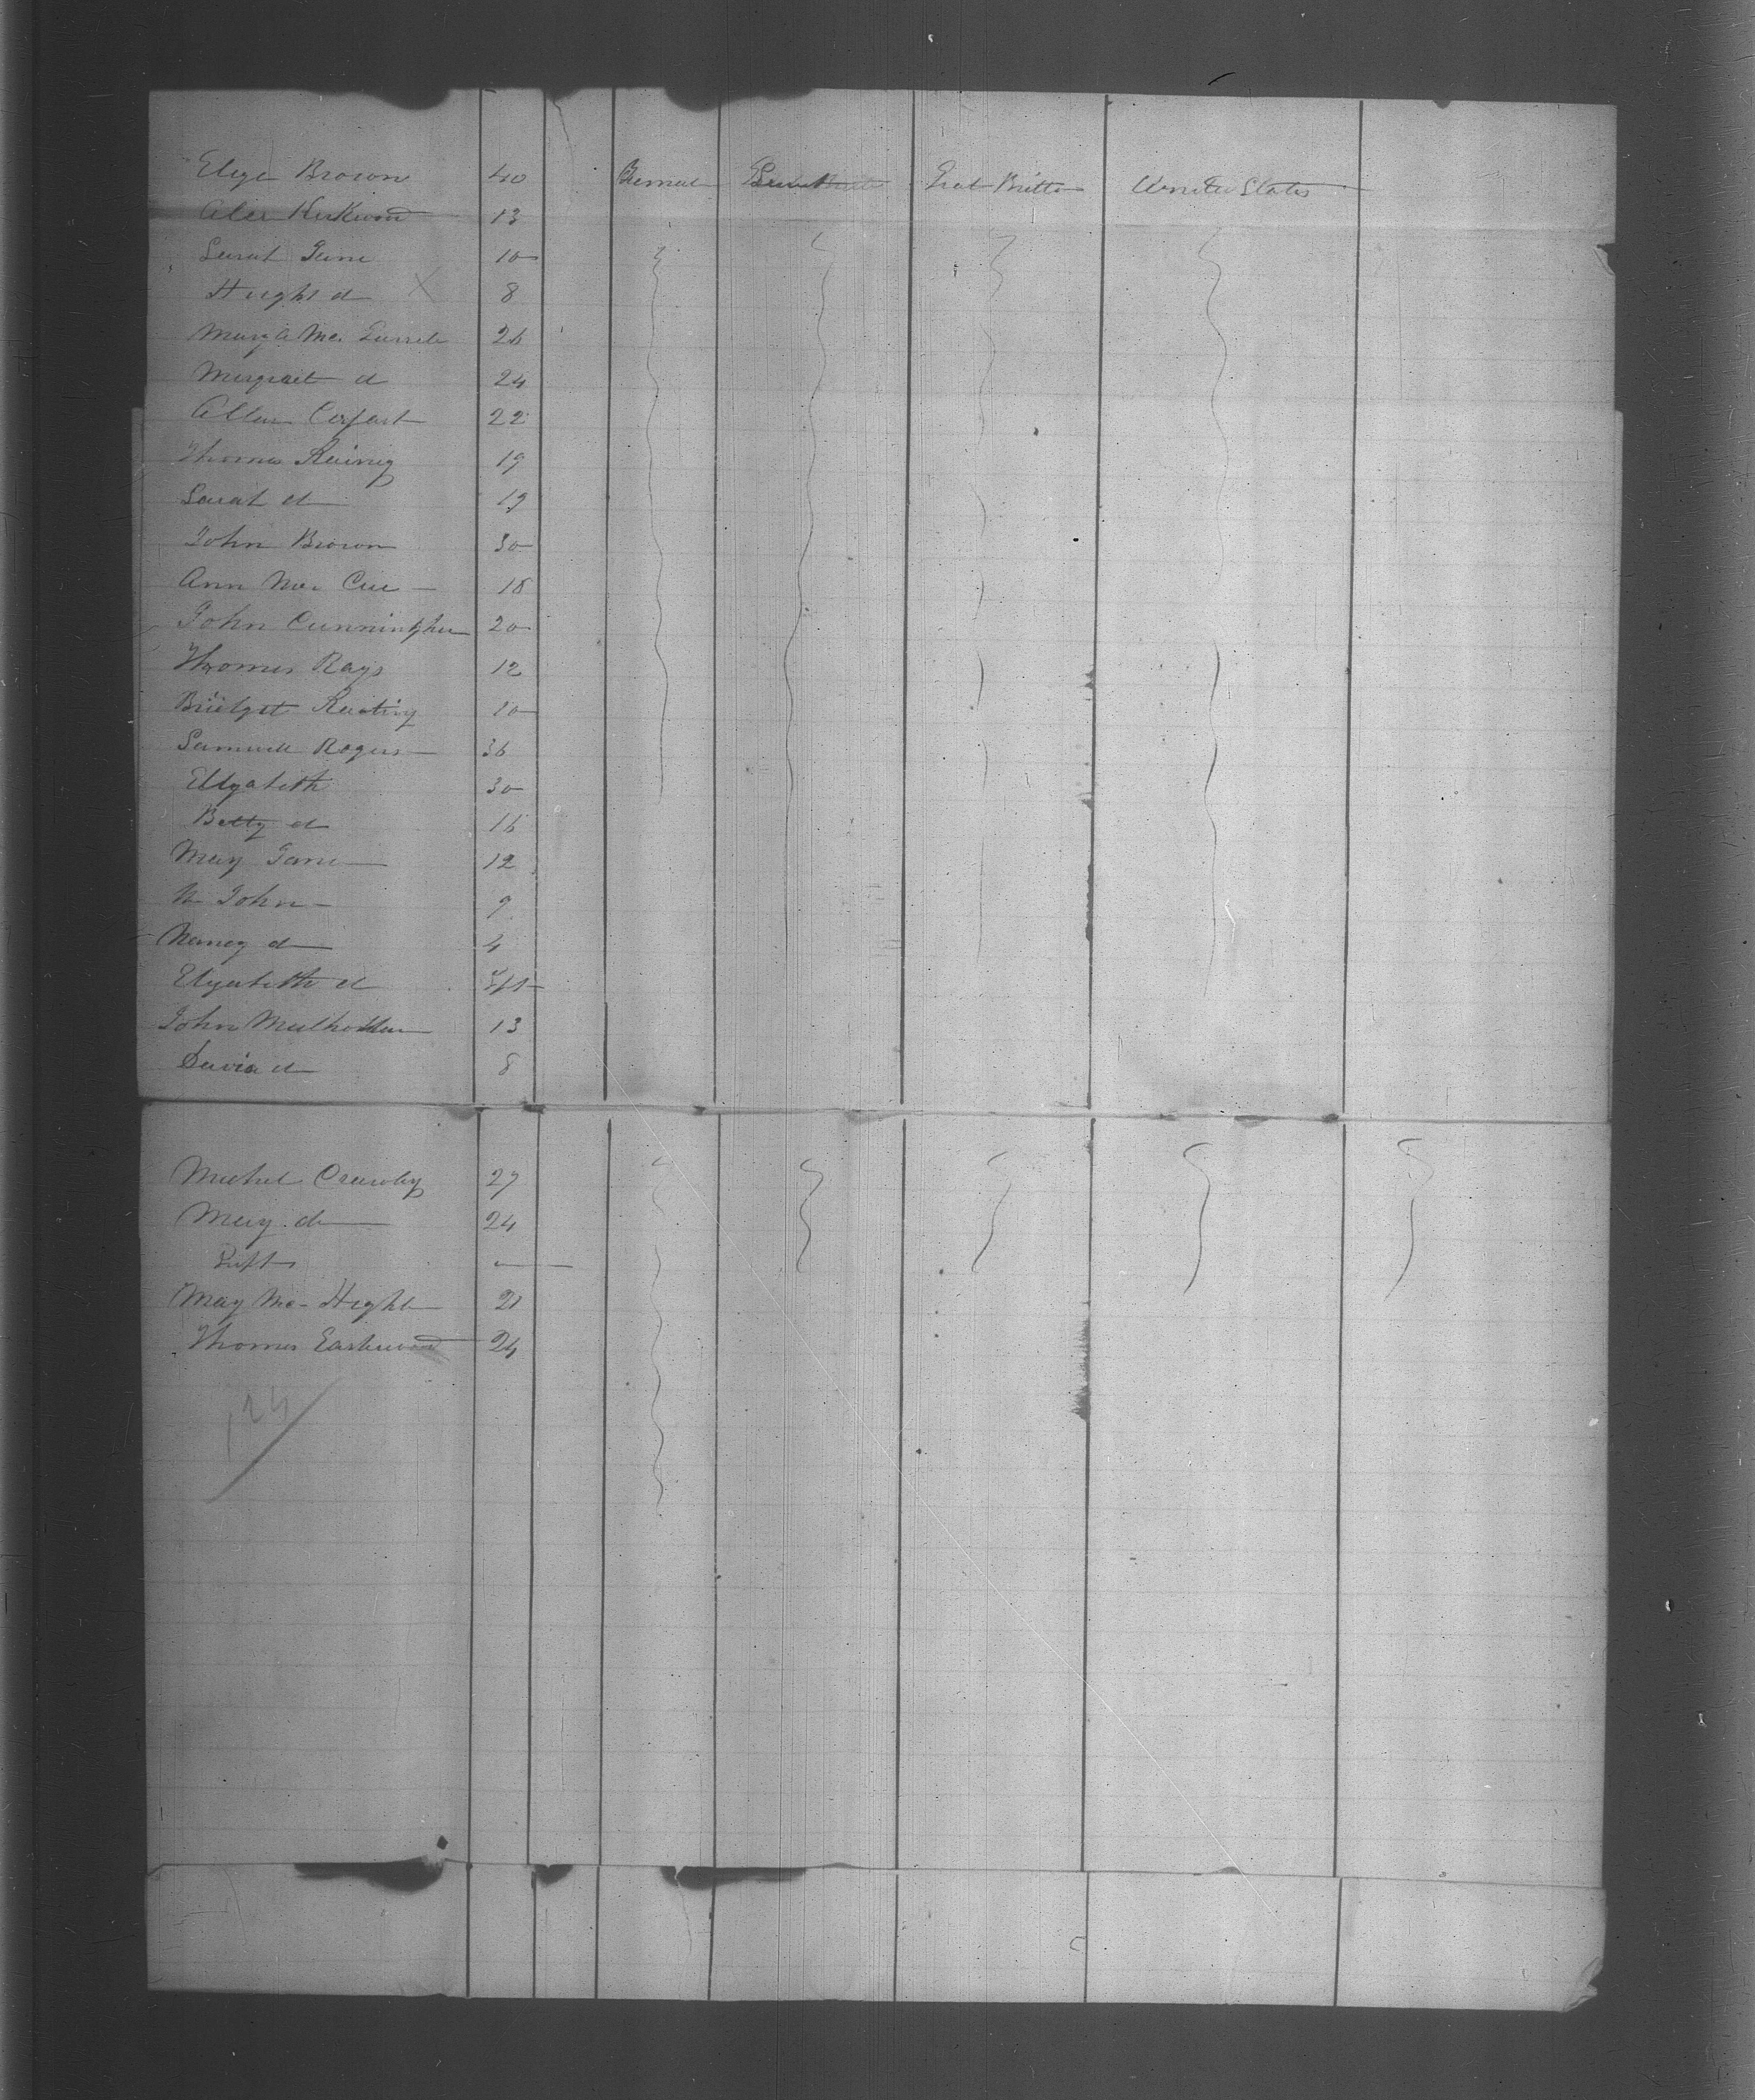 Elize Brown 40 Female Great Britto United States
Alex Kirkwood 13
Sarah Jane 10
Hugh d 8
Mary A Mc 26
Margaret d 24
Allen 22
Thomas 19
Sarah d 19
John Brown 30
Ann Mc Cue 18
John Cunningham 20
Thomas Rays 12
Bridget Keating 10
Samuell Rogers 36
Elizabeth 30
Betty d 16
Mary Jane 12
John 9
Nancy d 4
Elizabeth d
John Mulhollan 13
David d 8
Michel Crawley 27
Mary d 24
Inft
Mary Mc Hugh 21
Thomas Eastwood 24
124